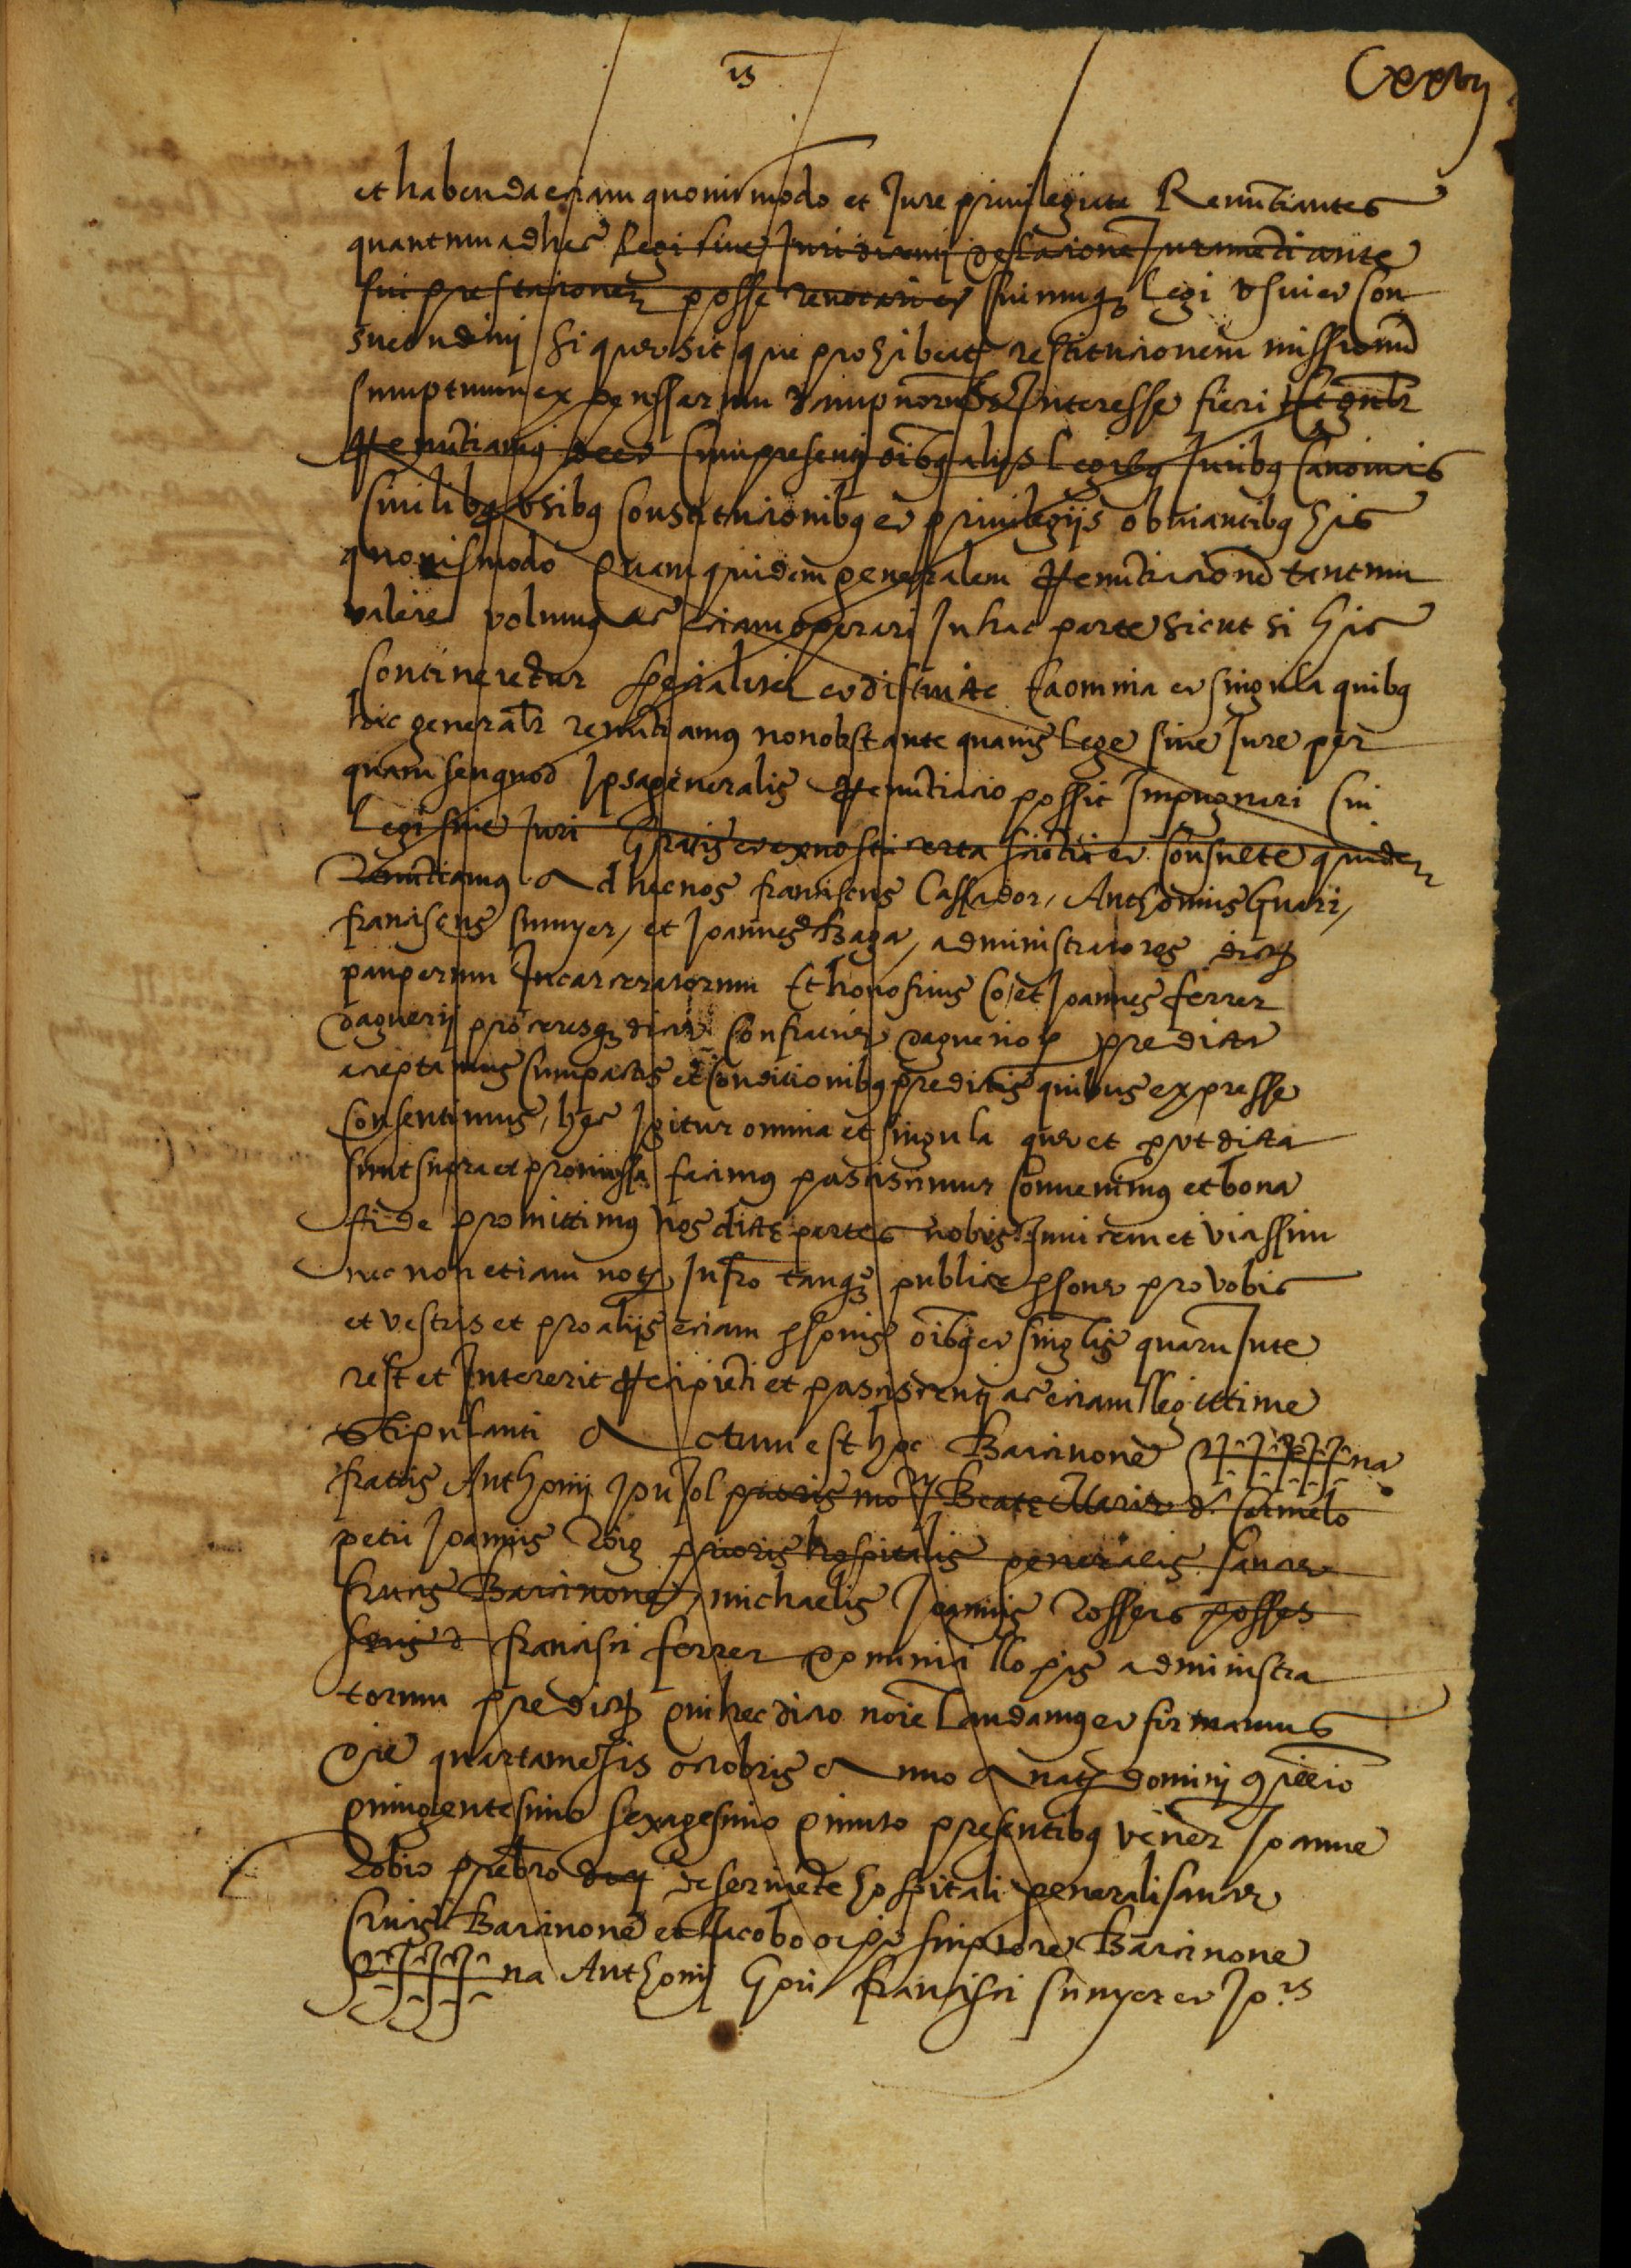 Cxxvij
et habenda etiam quovismodo et Jure privilegiata Renuntiantes
quantum ad hec legi sive Juri dicenti delationem Juramenti ante
sui prestationem posse revocari et cuicumq legi usui et con
suetudinj si que sit que prohibeat restitucionem missionum
sumptuum expenssarum dampnorum Interesse fieri Et gnalr
Renuntiamus cum presenti oibq alijs legibq Juribq Canonicis
Civilibq usibq constitucionibq et privilegiis obviantibq his
quovismodo Quam quidem generalem Renuntiacione tantum
valere volumq ac etiam operari In hac parte sicut si hic
contineretur specialiter et distincte Ea omnia et singula quibq
hic generalr renuntiamus non obstante quavis lege sive Jure per
quam seu quod Ipsa generalis Renuntiacio possit Impugnari Cui
legi sive Juri Gratis et ex nostri certa scientia et consulte quidem
Renuntiamus Ad hec nos franciscus Cassador, Anthonius Guari,
franciscus sunyer, et Joannes Baga, administratores dictor
pauperum Incarceratorum Et honofrius Co, et Joannes ferrer
daguerij proceresq dicte confratrie daguerior predicta
acceptamus cum pactis et conditionibq predictis quibus expresse
consentimus, hec Igitur omnia et singula que et prut dicta
sunt supra et promissa facimq pasciscimur convenimq et bona
fide promittimq nos dicte partes nobis Invicem et viassim
nec non etiam notº Infro tanq publice psone pro vobis
et vestris et pro alijs etiam psonis oibq et singlis quaru Inte
rest et Intererit Recipienti et pasciscenti ac etiam legittime
stipulanti Actum est hoc Barcinone na
fratris Anthonij Jpujol prioris mo Beate Marie de Carmelo
petri Joannis Roig prioris hospitalis generalis sancte
Crucis Barcinone, michaelis Joannis Rossers posses
francisci ferrer Dominici llopis administra
torum predictor Qui hec dicto noie laudamq et firmamus
die quarta mesis octobris Anno A naty dominj Millmo
Quingentesimo sexagesimo Quinto presentibq vener Joanne
Robio prebro de servicte hospitali generali sancte
Crucis Barcinone et Jacobo scriptore Barcinone
na Anthonij Gori francisci sunyer et Jo.is